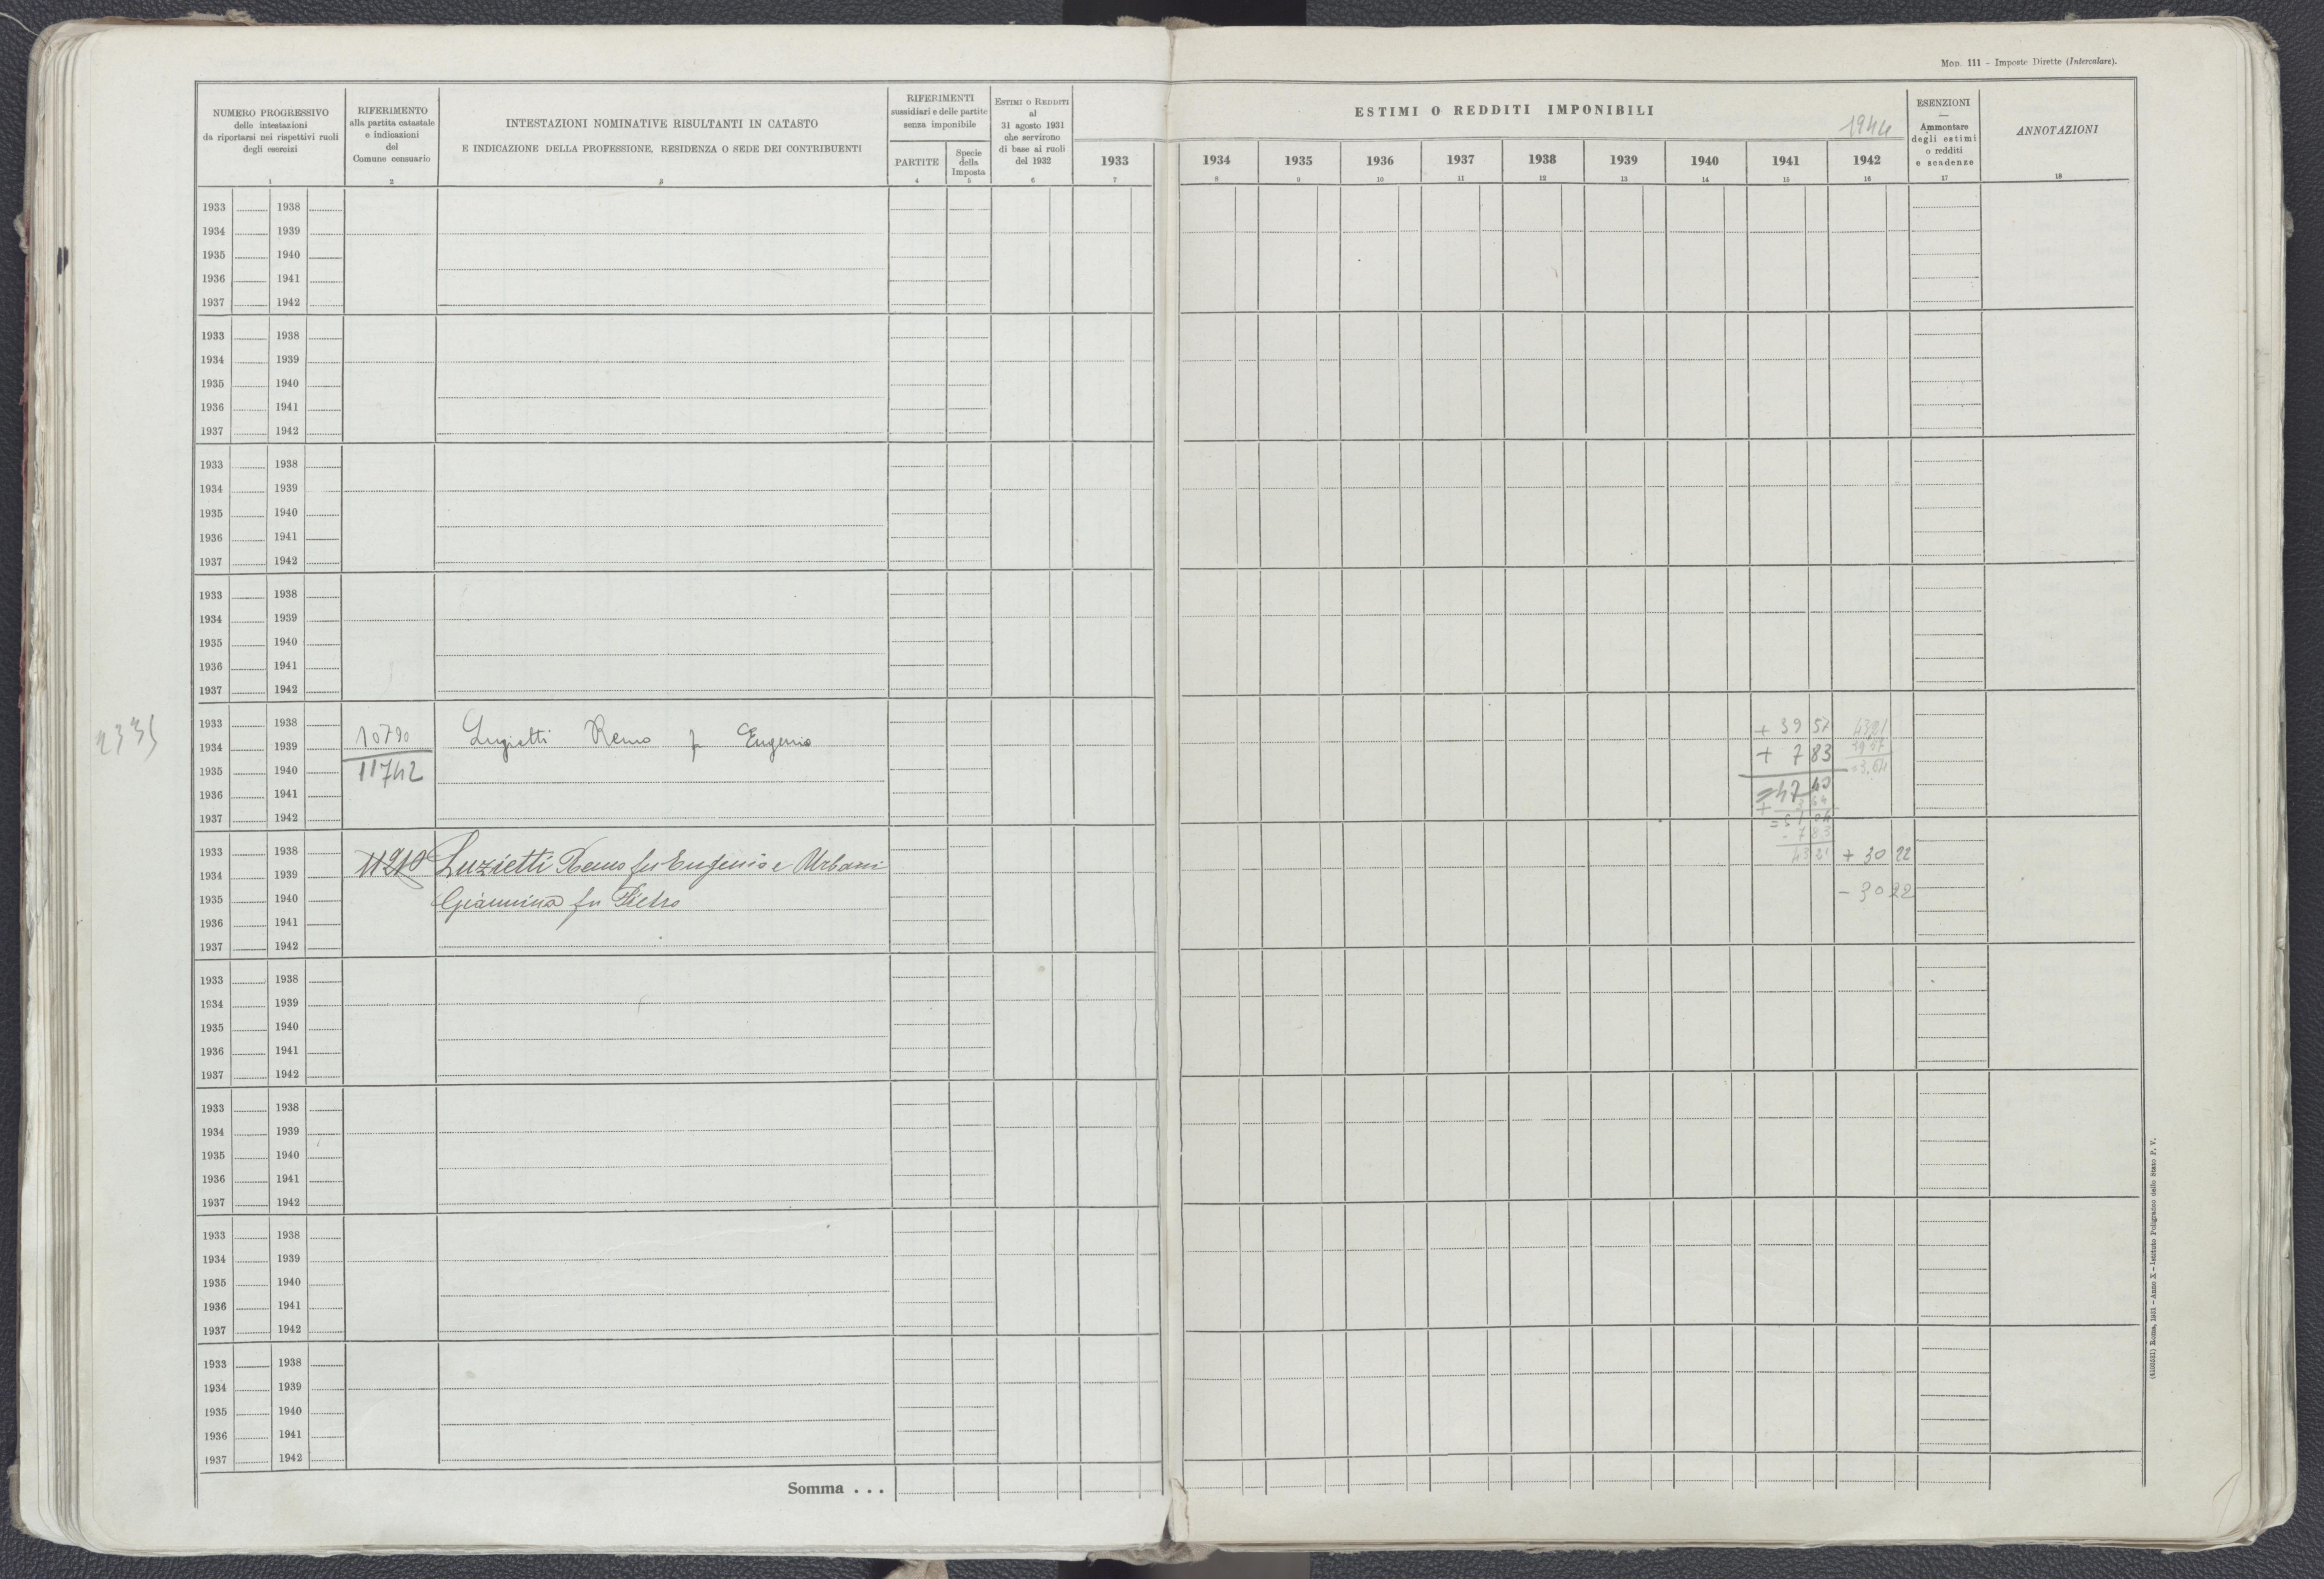 Mod. 111 - Imposte Dirette (Intercalare).
NUMERO PROGRESSIVO
delle intestazioni
da riportarsi nei rispettivi ruoli
degli esercizi
1
RIFERIMENTO
alla partita catastale
e indicazioni
del
Comune censuario
2
INTESTAZIONI NOMINATIVE RISULTANTI IN CATASTO
E INDICAZIONE DELLA PROFESSIONE, RESIDENZA O SEDE DEI CONTRIBUENTI
3
RIFERIMENTI
sussidiari e delle partite
senza imponibile
PARTITE
4
Specie
della
Imposta
5
ESTIMI O REDDITI
al
31 agosto 1931
che servirono
di base ai ruoli
del 1932
6
ESTIMI O REDDITI IMPONIBILI
1944
1933 1934 1935 1936 1937 1938 1939 1940 1941 1942
7 8 9 10 11 12 13 14 15 16
ESENZIONI
—
Ammontare
degli estimi
o redditi
e scadenze
17
ANNOTAZIONI
18
1933 1938
1934 1939
1935 1940
1936 1941
1937 1942
1933 1938
1934 1939
1935 1940
1936 1941
1937 1942
1933 1938
1934 1939
1935 1940
1936 1941
1937 1942
1933 1938
1934 1939
1935 1940
1936 1941
1937 1942
1933 1938 + 39 57 4321
1934 1939 10790 Luzietti Remo fu Eugenio + 7 83 39 57
1935 1940 11742 = 3.64
1936 1941 = 47 40
1937 1942 + 3 64
= 51 04
- 7 83
1933 1938 43 21 + 30 22
1934 1939 11210 Luzietti Remo fu Eugenio e Urbani
1935 1940 Giannina fu Pietro - 30 22
1936 1941
1937 1942
1933 1938
1934 1939
1935 1940
1936 1941
1937 1942
1933 1938
1934 1939
1935 1940
1936 1941
1937 1942
1933 1938
1934 1939
1935 1940
1936 1941
1937 1942
1933 1938
1934 1939
1935 1940
1936 1941
1937 1942
Somma . . .